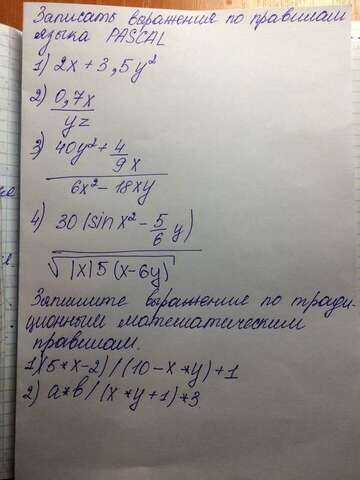 Записать выражения по правилам
языка PASCAL
1) 2x + 3,5y²
2) 0,7x
yz
3) 40y² + 4/9 x
6x² - 18xy
4) 30 (sin x² - 5/6 y)
√|x|5 (x-6y)
Запишите выражение по тради-
ционным математическим
правилам.
1)(5*x-2)/(10-x*y)+1
2) a*b/(x*y+1)*3